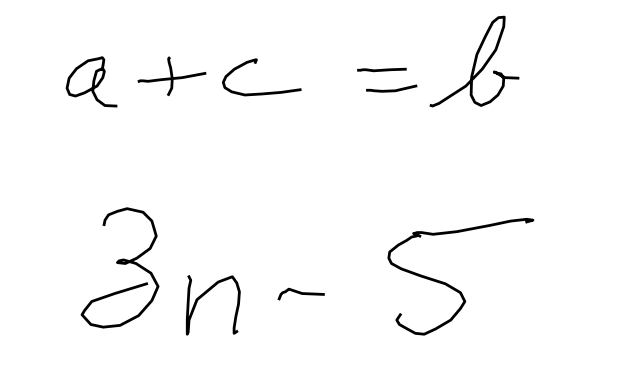 a + c = b
3n - 5